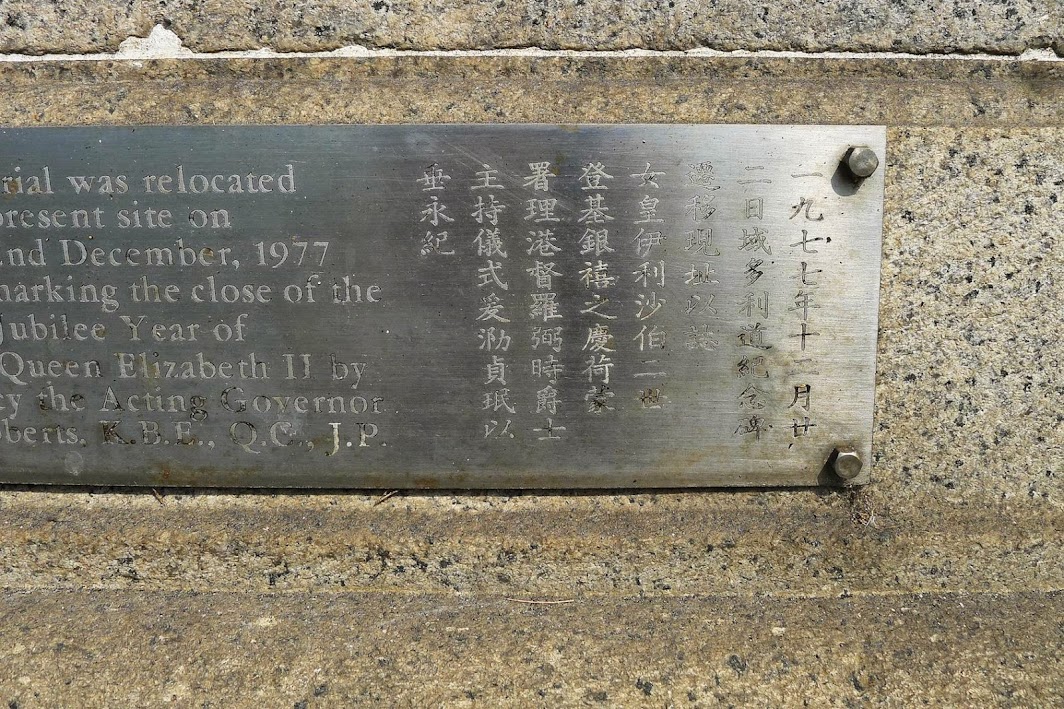 rial was relocated
present site on
2nd December, 1977
marking the close of the
Jubilee Year of
Queen Elizabeth II by
cy the Acting Governor
oberts, K.B.E., Q.C., J.P.
一九七七年十二月廿
二日域多利道紀念碑
遷移現址以誌
女皇伊利沙伯二世
登基銀禧之慶荷蒙
署理港督羅弼時爵士
主持儀式爰泐貞珉以
垂永紀